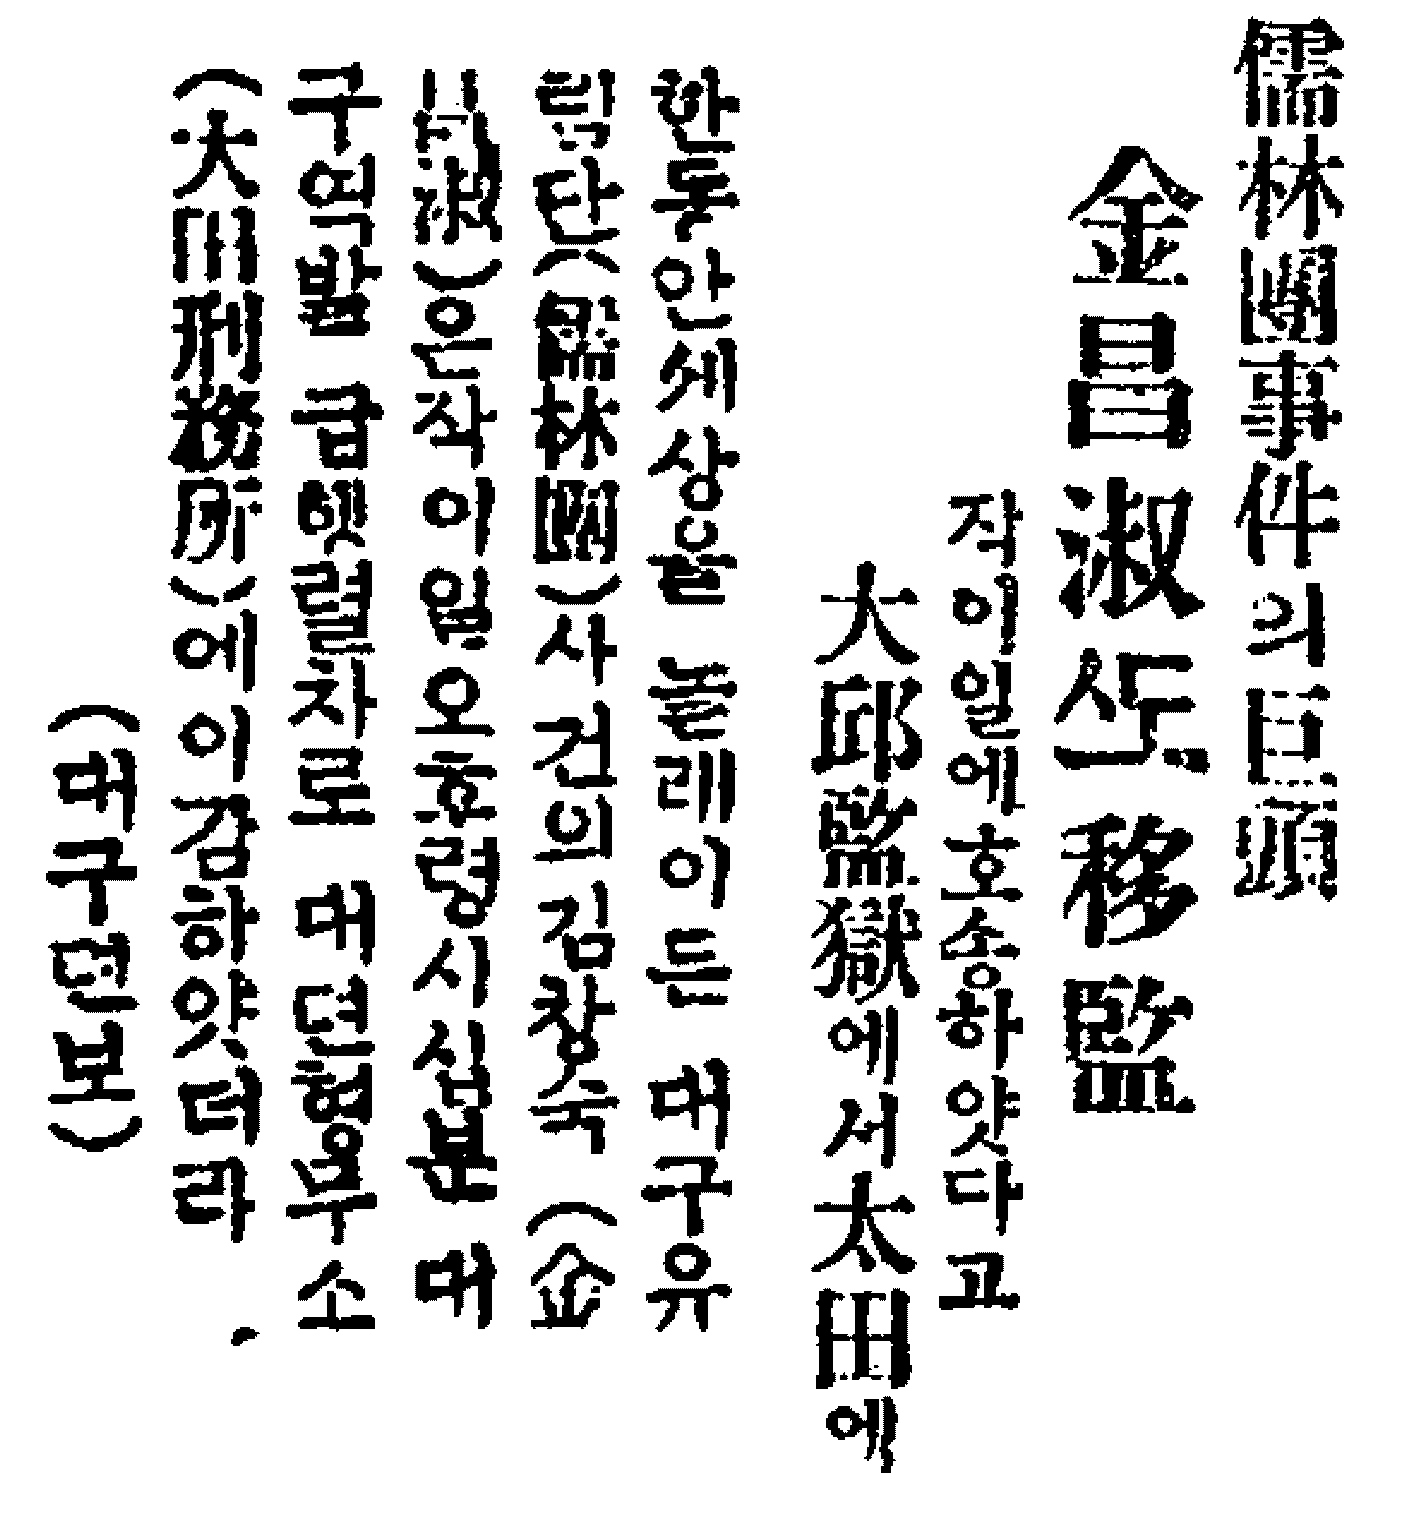 儒林團事件의巨頭
金昌淑도移監
작이일에호송하얏다고
大邱監獄에서太田에
한동안세상을 놀래이든 대구유
림단(儒林團)사건의김창숙 (金
昌淑)은작이일오호령시십분 대
구역발 급행렬차로 대뎐형무소
(大田刑務所)에이감하얏더라
(대구뎐보)